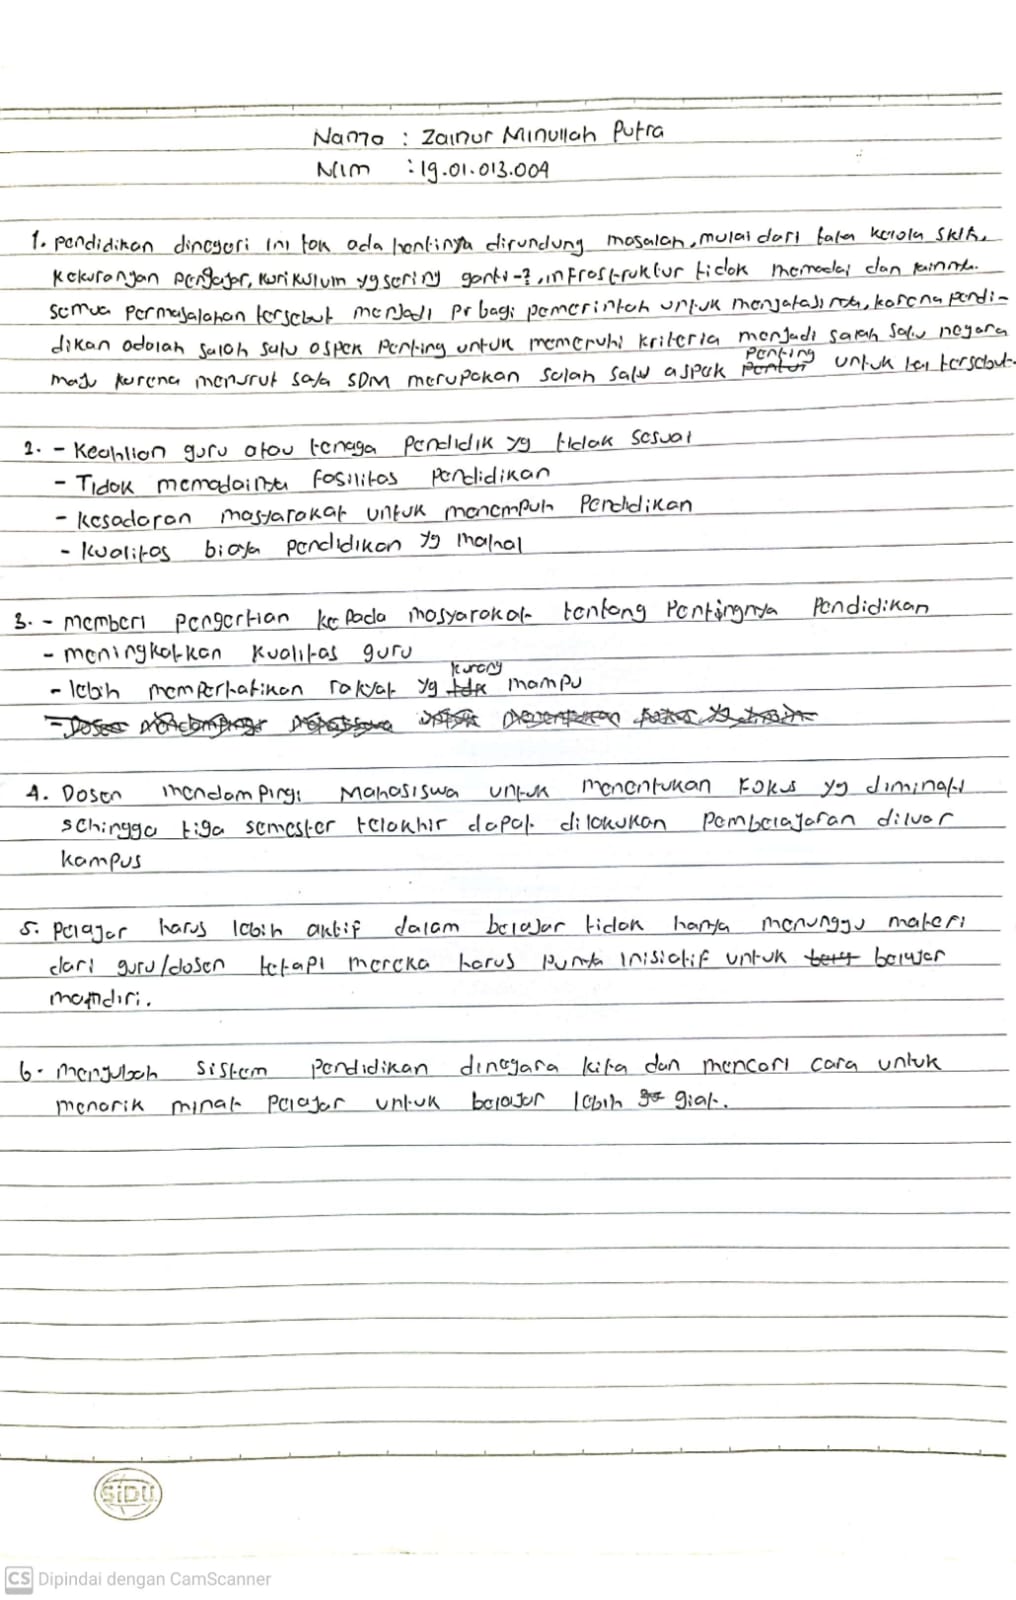 Nama : Zainur Minullah Putra
Nim : 19.01.013.004
1. pendidikan dinegeri ini tak ada hentinya dirundung masalah, mulai dari tata kelola
kekurangan pengajar, kurikulum yg sering ganti-2, infrastruktur tidak memadai dan lainnya.
semua permasalahan tersebut menjadi pr bagi pemerintah untuk mengatasinya, karena pendi-
dikan adalah salah satu aspek penting untuk memenuhi kriteria menjadi salah satu negara
maju karena menurut saya SDM merupakan salah satu aspek penting untuk tersebut.
2. - Keahlian guru atau tenaga pendidik yg tidak sesuai
- Tidak memadainya fasilitas pendidikan
- kesadaran masyarakat untuk menempuh Pendidikan
- kualitas biaya pendidikan yg mahal
3. - memberi pengertian kepada masyarakat tentang Pentingnya Pendidikan
- meningkatkan kualitas guru
- lebih memperhatikan rakyat yg kurang mampu
4. Dosen mendampingi Mahasiswa untuk menentukan Fokus yg diminati
sehingga tiga semester telakhir dapat dilakukan Pembelajaran diluar
kampus
5. pelajar harus lebih aktif dalam belajar tidak hanya menunggu materi
dari guru/dosen tetapi mereka harus punya inisiatif untuk belajar
mandiri.
6. mengubah sistem pendidikan dinegara kita dan mencari cara untuk
menarik minat pelajar untuk belajar lebih giat.
SiDU
CS Dipindai dengan CamScanner